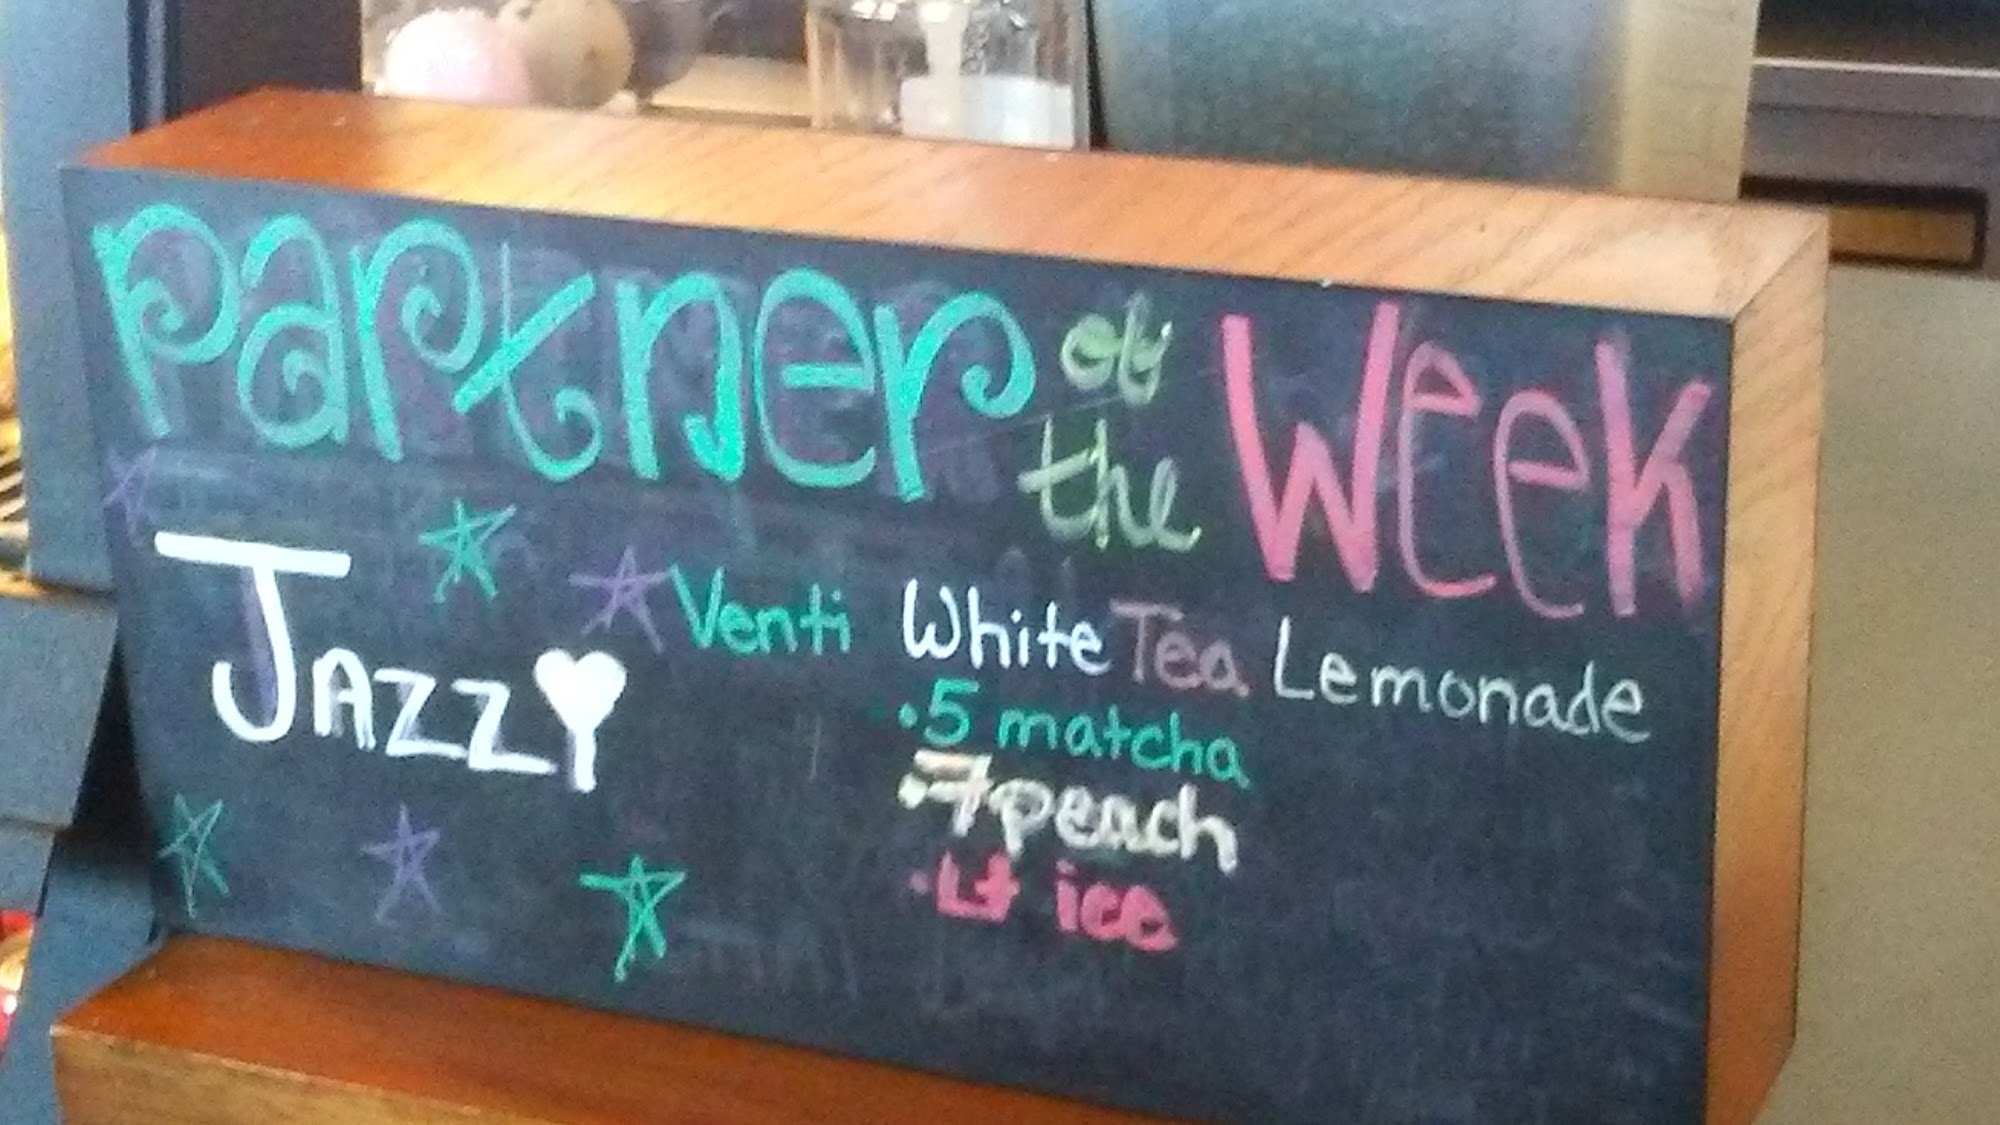 Partner of the Week
Jazzy
Venti White Tea Lemonade
• 5 matcha
• 7 peach
• Lt ice